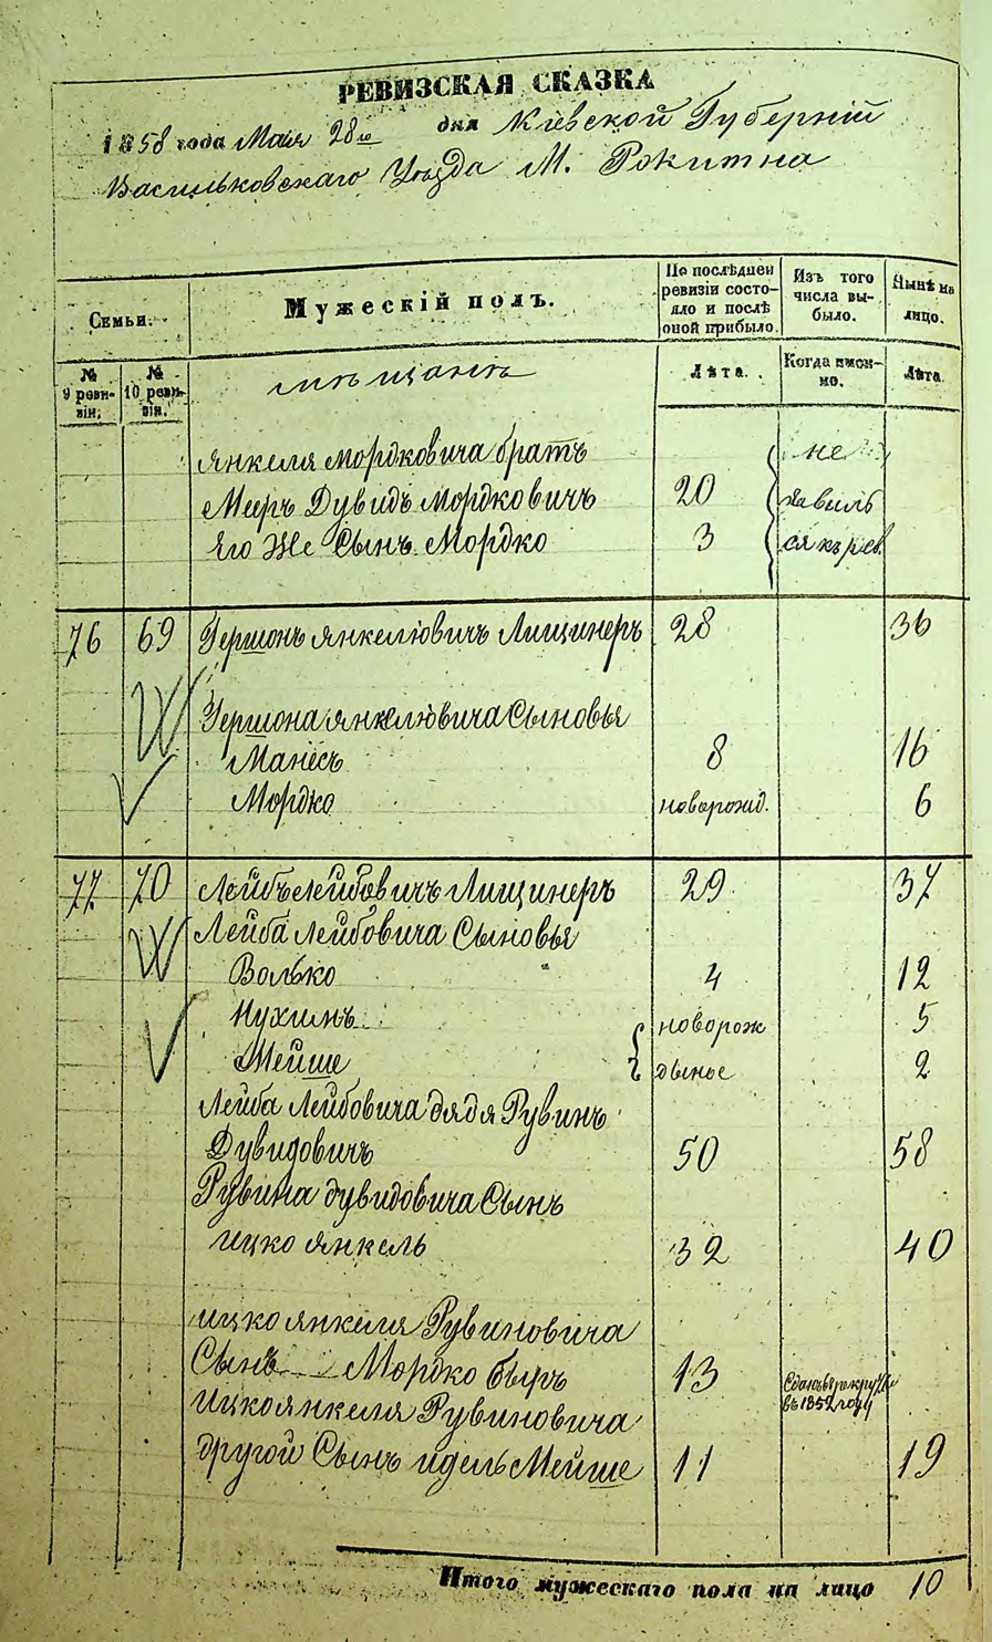 РЕВИЗСКАЯ СКАЗКА
1858 года Мая 28го дня Кіевской Губерніи
Васильковскаго Уѣзда М. Рокитна
Семьи.
Мужескій полъ.
По послѣдней ревизіи состояло и послѣ оной прибыло.
Изъ того числа выбыло.
Нынѣ на лицо.
№ 9 ревизіи.
№ 10 ревизіи.
мѣщанѣ
Лѣта.
Когда именно.
Лѣта
Янкеля Мордковича братъ не
Мееръ Дувидъ Мордковичъ 20 явилъ
Его Же Сынъ Мордко 3 ся къ рев.
76 69 Гершонъ Янкелювичъ Лищинеръ 28 36
Гершона Янкелювича Сыновья
Манесъ 8 16
Мордко новорожд. 6
77 70 Лейбъ Лейбовичъ Лищинеръ 29 37
Лейба Лейбовича Сыновья
Волько 4 12
Нухимъ новорож 5
Мейше дьнье 2
Лейба Лейбовича дядя Рувинъ
Дувидовичъ 50 58
Рувина Дувидовича Сынъ
Ицко Янкель 32 40
Ицко Янкеля Рувиновича
Сынъ Мордко Беръ 13 Сданъ в рекруты
въ 1852 году
Ицко Янкеля Рувиновича
другой Сынъ Идель Мейше 11 19
Итого мужескаго пола на лицо 10